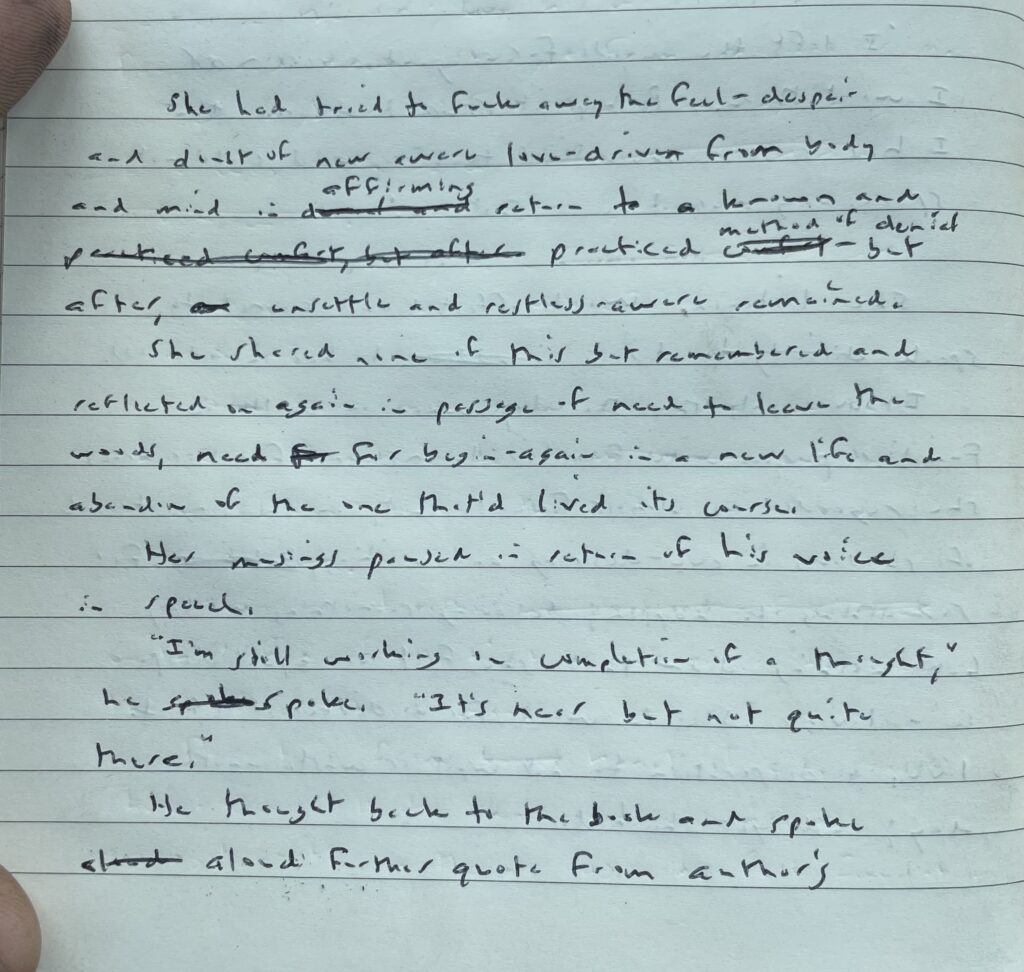 She had tried to fuck away the feel-despair
and doubt of new aware love-driven from body
and mind in affirming return to a known and
practiced comfort, but after practiced method of denial - but
after, unsettle and restless-aware remained.
She shared none of this but remembered and
reflected on again in passage of need to leave the
woods, need for begin-again in a new life and
abandon of the one that'd lived its course.
Her musings paused in return of his voice
in speech.
"I'm still working on completion of a thought,"
he spoke. "It's near but not quite
there."
He thought back to the book and spoke
aloud further quote from author's